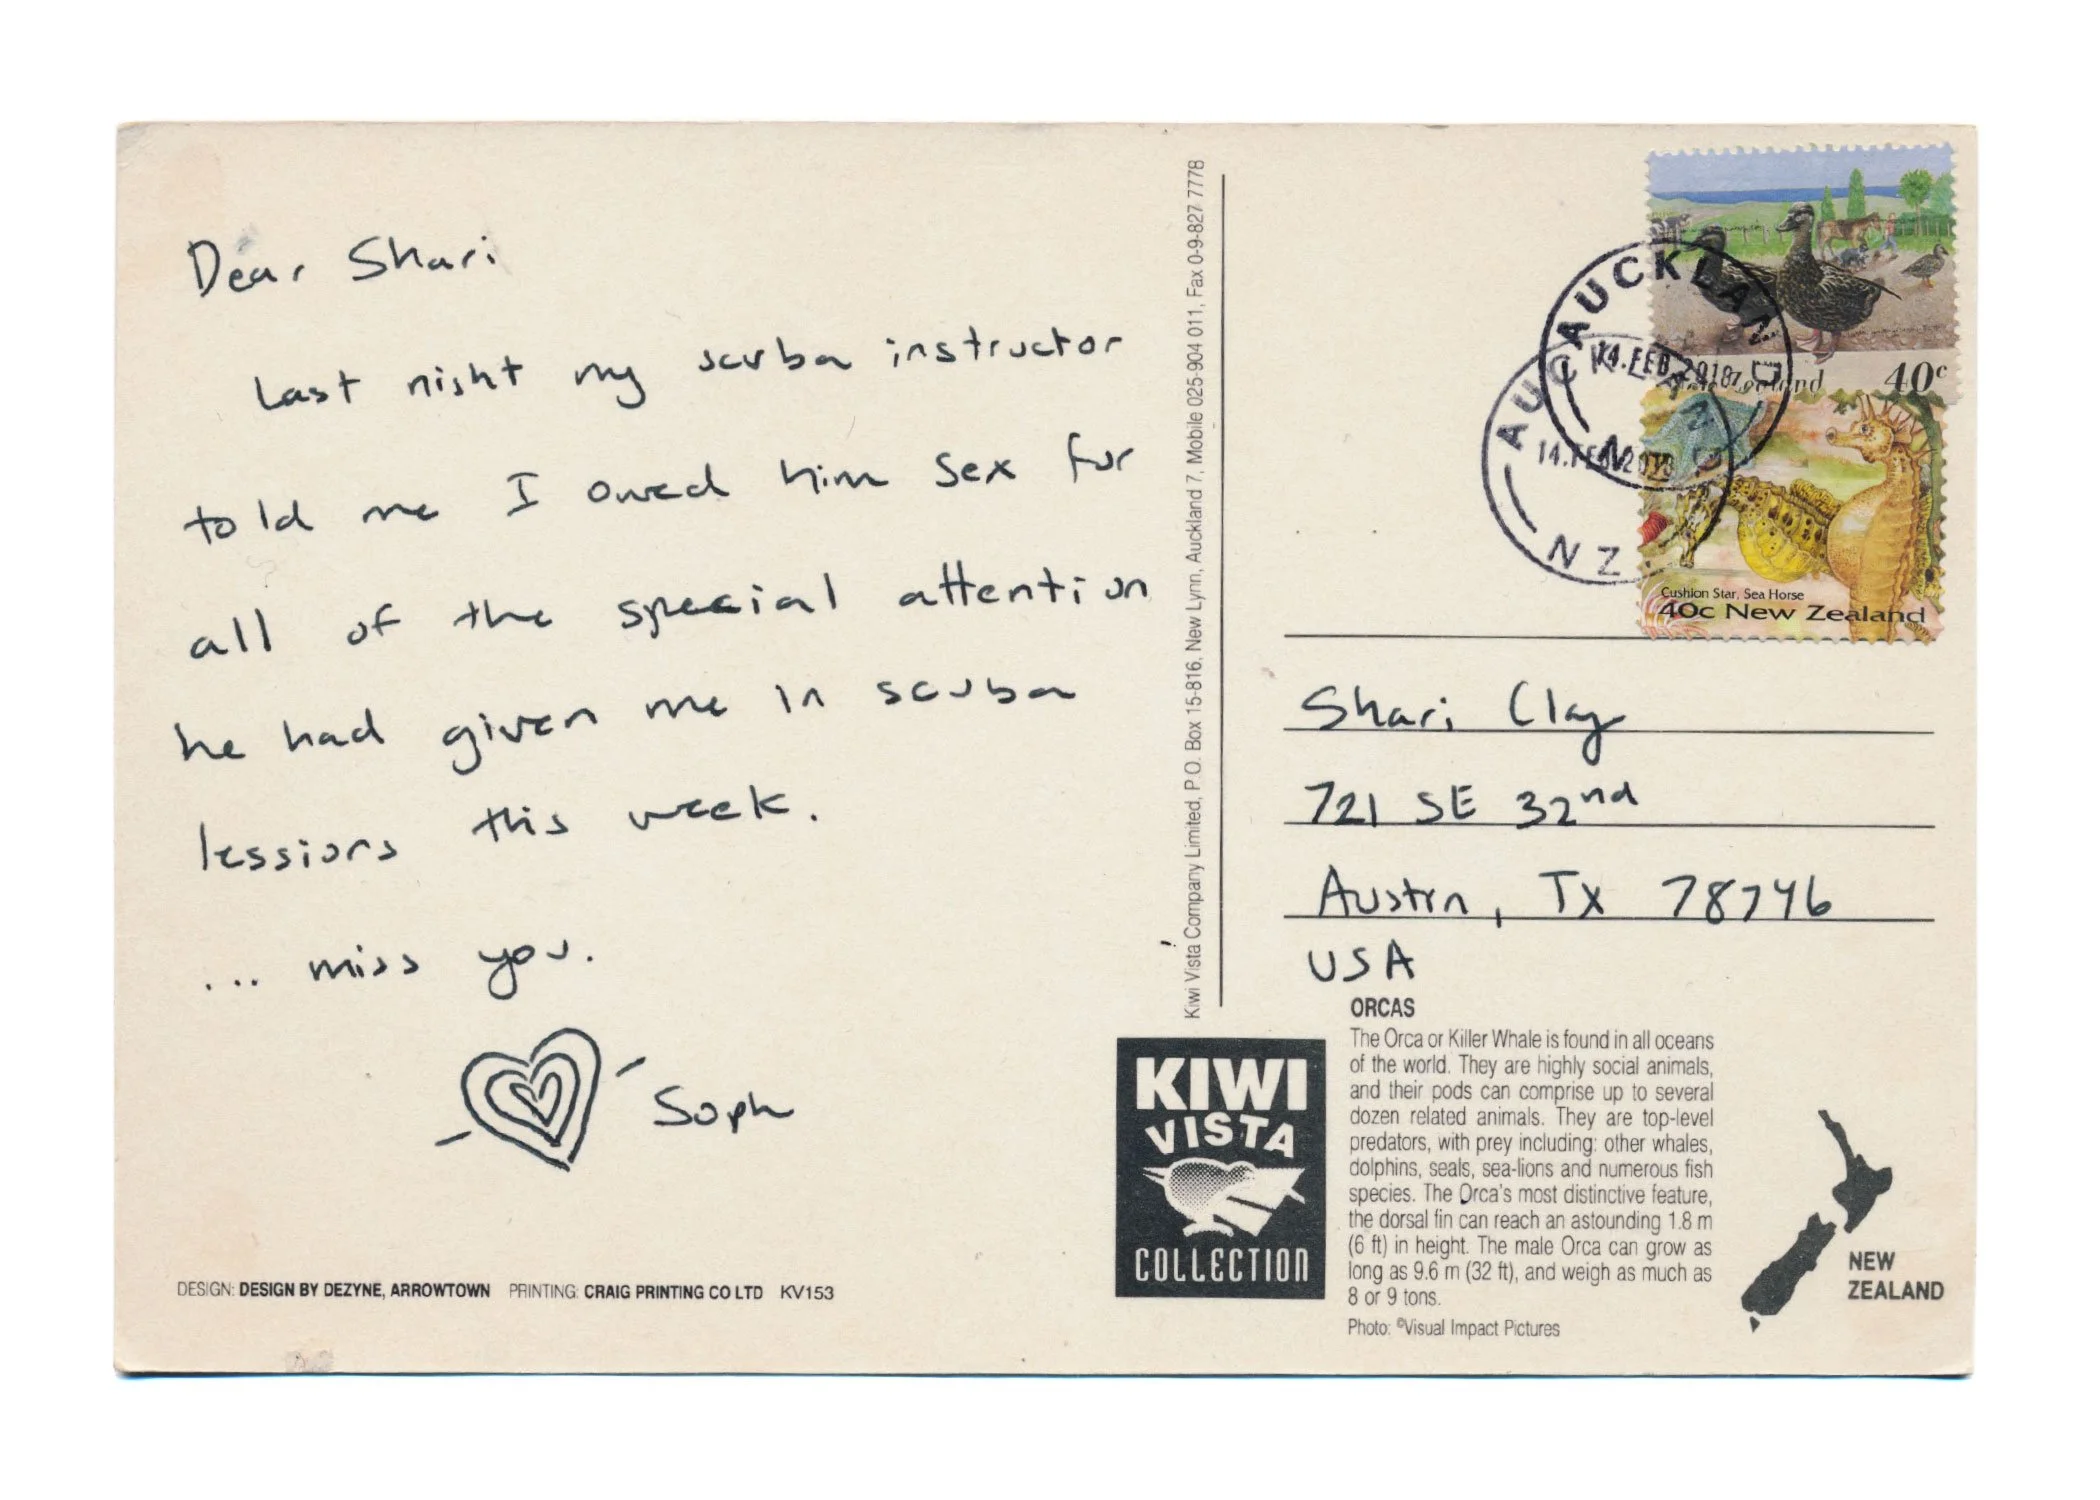 Dear Shari
Last night my scuba instructor
told me I owed him sex for
all of the special attention
he had given me in scuba
lessions this week.
... miss you.
Soph
DESIGN: DESIGN BY DEZYNE, ARROWTOWN PRINTING: CRAIG PRINTING CO LTD KV153
Kiwi Vista Company Limited, P.O. Box 15-816, New Lynn, Auckland 7, Mobile 025-904 011, Fax 0-9-827 7778
AUCKLAND
14.FEB 2018
NZ
AUCKLAND
14.FEB 2018
NZ
New Zealand 40c
Cushion Star, Sea Horse
40c New Zealand
Shari Clay
721 SE 32nd
Austin, TX 78746
USA
KIWI
VISTA
COLLECTION
ORCAS
The Orca or Killer Whale is found in all oceans
of the world. They are highly social animals,
and their pods can comprise up to several
dozen related animals. They are top-level
predators, with prey including: other whales,
dolphins, seals, sea-lions and numerous fish
species. The Orca's most distinctive feature,
the dorsal fin can reach an astounding 1.8 m
(6 ft) in height. The male Orca can grow as
long as 9.6 m (32 ft), and weigh as much as
8 or 9 tons.
Photo: ©Visual Impact Pictures
NEW
ZEALAND